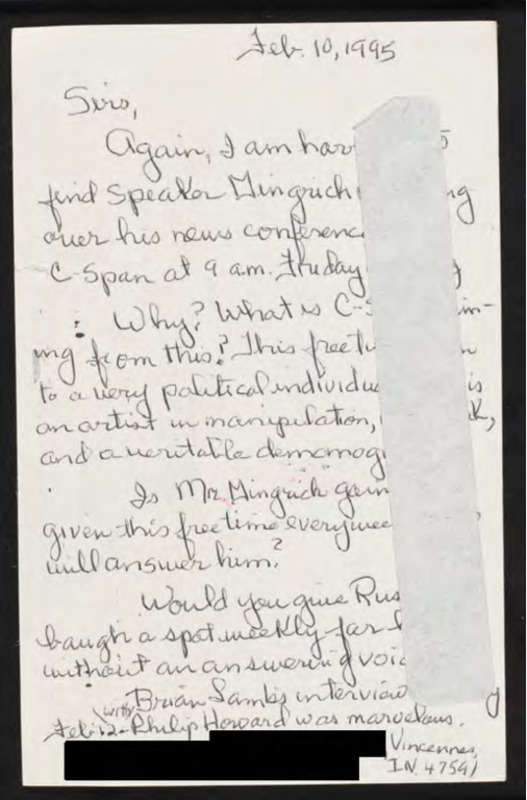 Feb. 10, 1995
Sirs,
Again, I am
find Speaker Gingrich
over his news
C-Span at 9 a.m. Friday
Why? What is
ing from this? This free
to a very political
an artist in manipulation,
and a veritable
Is Mr. Gingrich
given this free time
will answer him?
Would you give
baugh a spot weekly for
without an answering
Brian Lamb's interview
with
Feb. 12 - Philip Howard was marvelous.
Vincennes,
IN. 47591